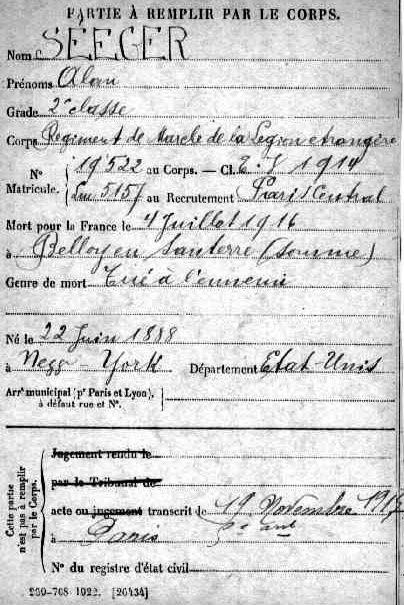 PARTIE À REMPLIR PAR LE CORPS.
Nom SEEGER
Prénoms Alan
Grade 2e classe
Corps Régiment de Marche de la Légion étrangère
N° Matricule. 19522 au Corps. — Cl. E.V 1914
5157 au Recrutement Paris Central
Mort pour la France le 4 Juillet 1916
à Belloy en Santerre (Somme)
Genre de mort Tué à l'ennemi
Né le 22 Juin 1888
à New-York Département Etat-Unis
Arrt municipal (pr Paris et Lyon).
à défaut rue et N°.
Cette partie n'est pas à remplir par le Corps.
Jugement rendu le
par le Tribunal de
acte ou jugement transcrit le 19 Novembre
à Paris
N° du registre d'état civil
260-708 1922. [26434]